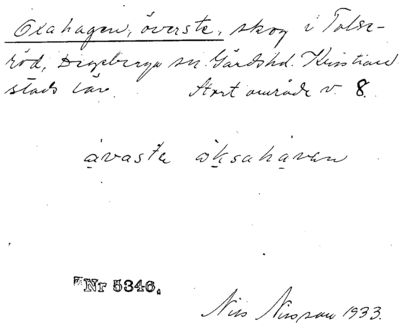 Oxahagen, överste, skog i Tolse-
röd, Degeberga sn. Gärdshd. Kristian
stads län. Stort område v 8.
åvasta öksahaven
Nr 5346.
Nils Nilsson 1933.